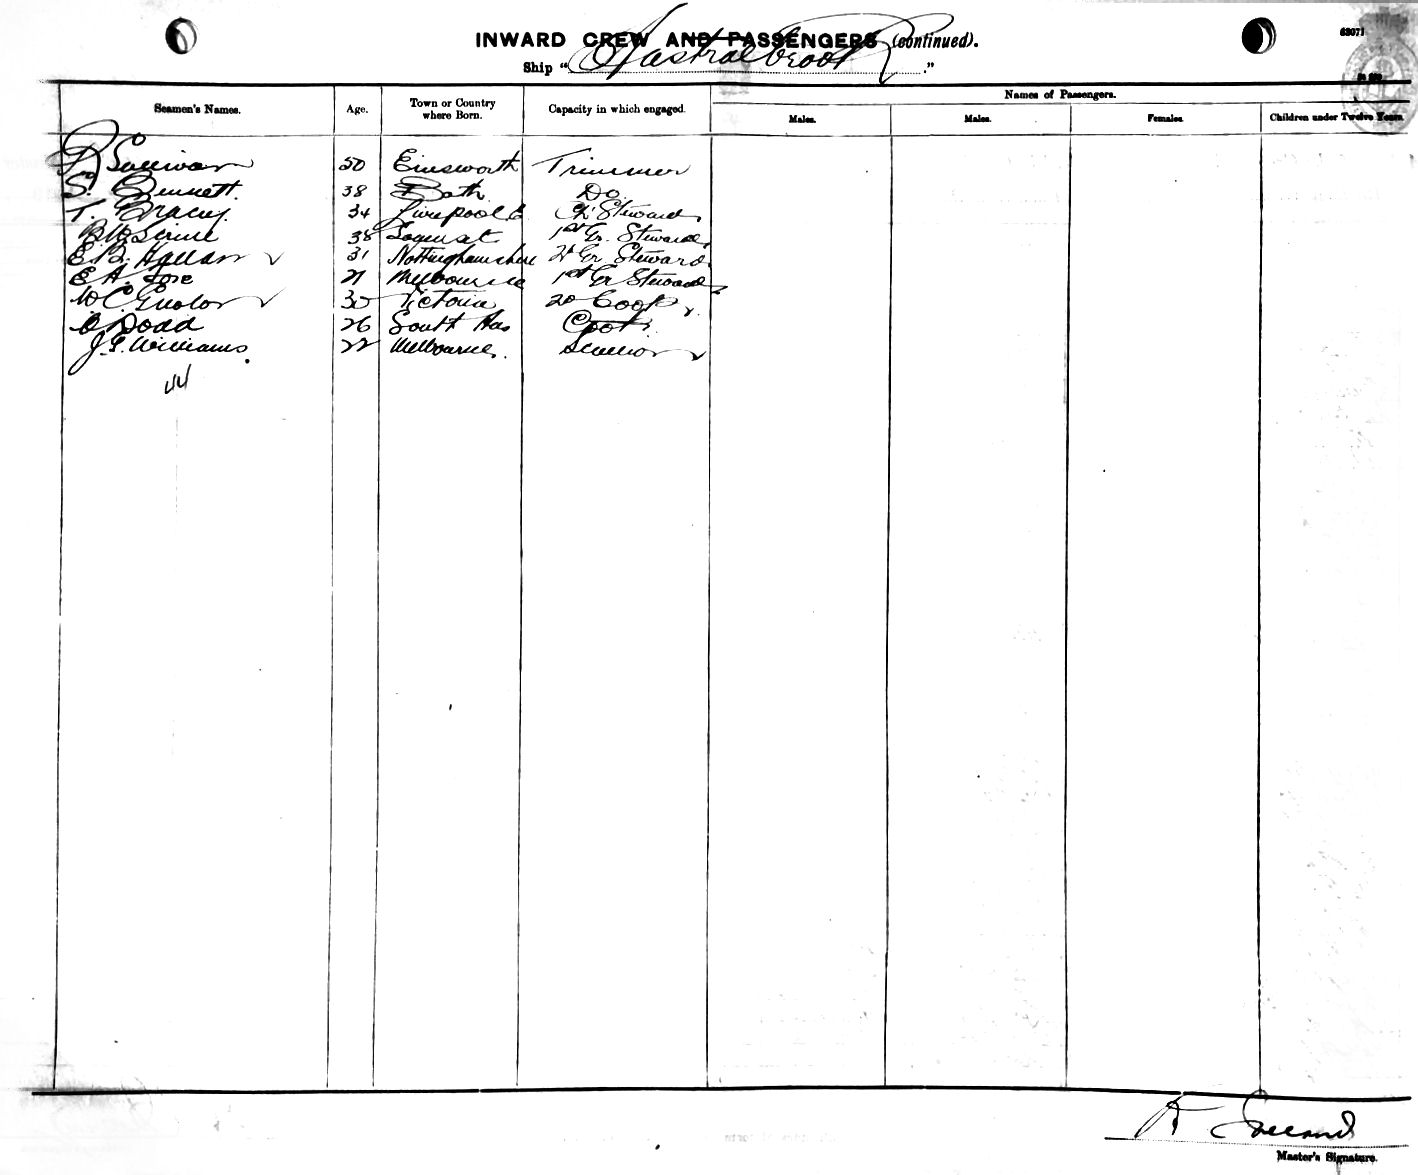 63071
INWARD CREW AND PASSENGERS (continued).
Ship " Australbrook ."
Names of Passengers.
Seamen's Names. Age. Town or Country where Born. Capacity in which engaged. Males. Males. Females. Children under Twelve Years.
Sullivan 50 Trimmer
S. Bennett 38 Bath Do
T. Bracey 34 Liverpool Ch. Steward
38 1st Gr. Steward
E. 31 Nottinghamshire 2d Gr Steward
E A 21 Melbourne 1st Gr Steward
W C Victoria 2d Cook
Dodd 26 South Aus Cook
J. G. Williams. 22 Melbourne. Scullion
44
Master's Signature.